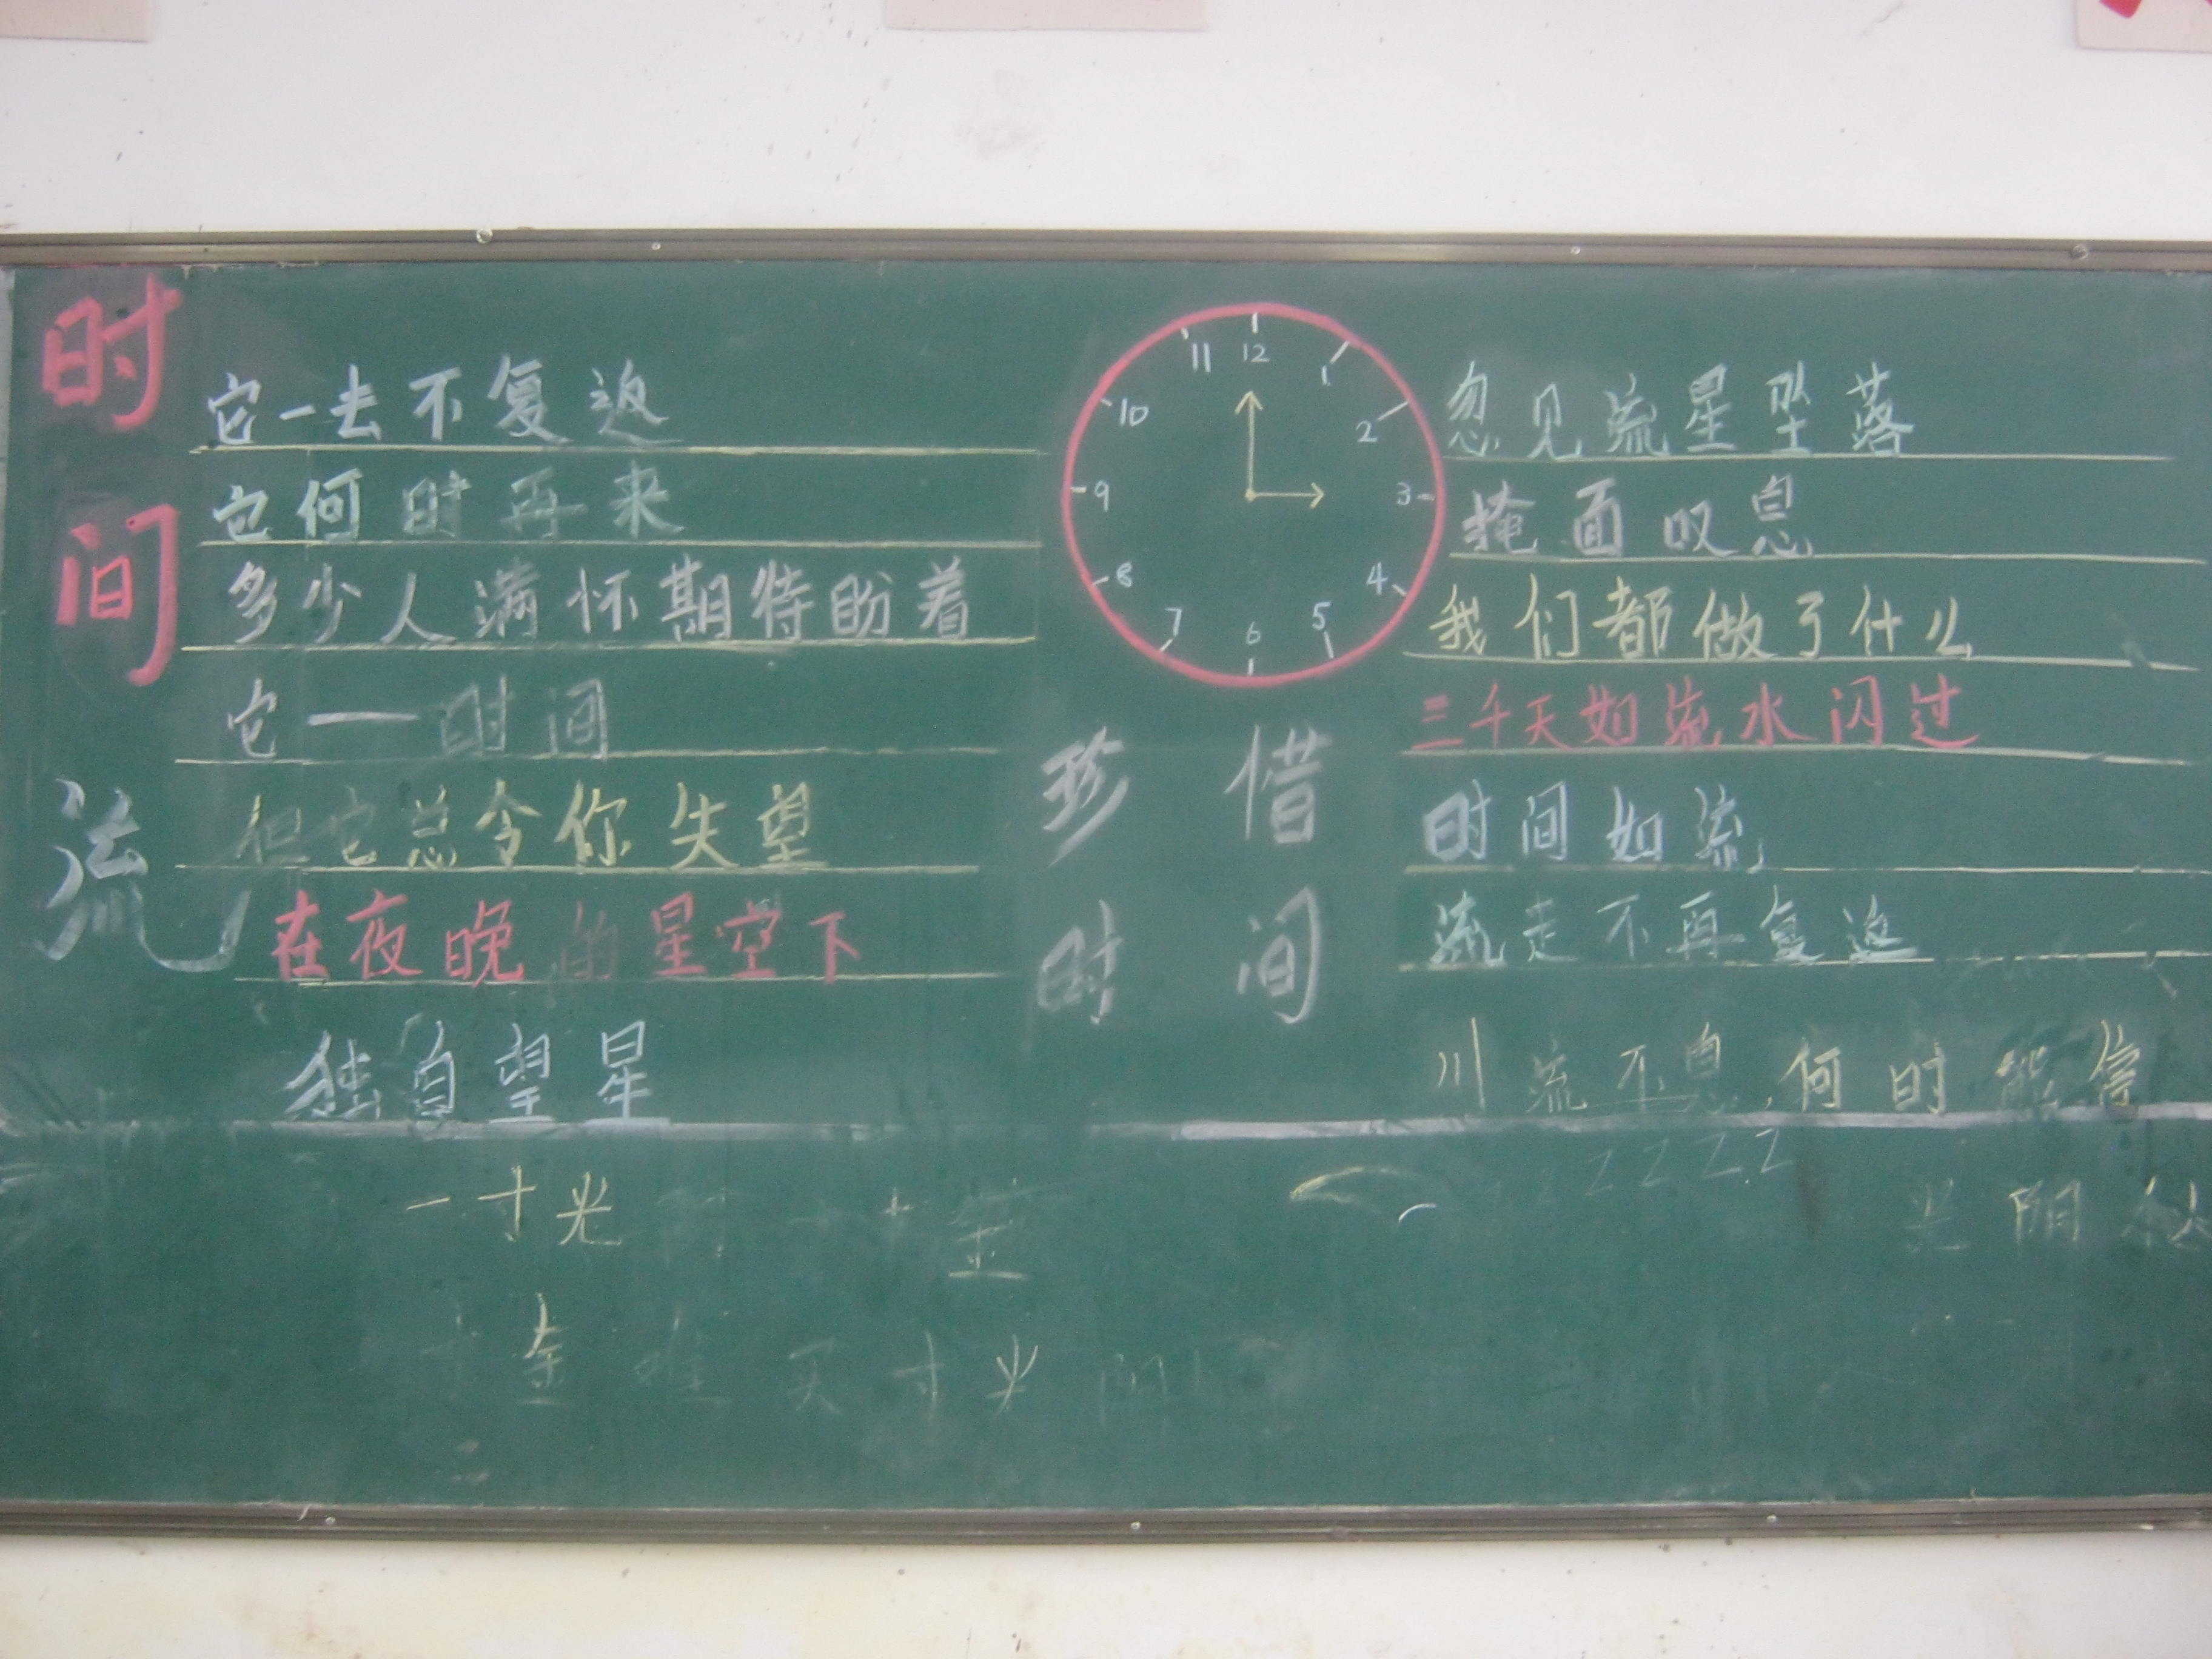 时间流
它一去不复返
它何时再来
多少人满怀期待盼着
它一时间
但它总令你失望
在夜晚的星空下
独自望星
一寸光
金
金 买寸光
11 12 1
10 2
9 3
8 4
7 6 5
珍惜
时间
忽见流星坠落
掩面叹息
我们都做了什么
三千天如流水闪过
时间如流
流走不再复返
川流不息,何时能停
ZZZZ
光阴似